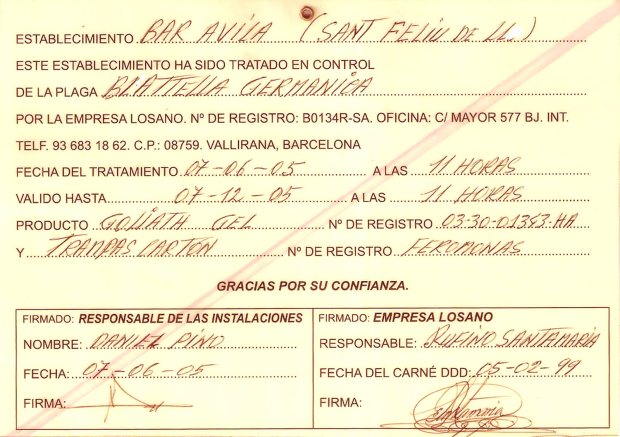 ESTABLECIMIENTO BAR AVILA (SANT FELIU DE LL.)
ESTE ESTABLECIMIENTO HA SIDO TRATADO EN CONTROL
DE LA PLAGA BLATTELLA GERMANICA
POR LA EMPRESA LOSANO. Nº DE REGISTRO: B0134R-SA. OFICINA: C/ MAYOR 577 BJ. INT.
TELF. 93 683 18 62. C.P.: 08759. VALLIRANA, BARCELONA
FECHA DEL TRATAMIENTO 07-06-05 A LAS 11 HORAS
VALIDO HASTA 07-12-05 A LAS 11 HORAS
PRODUCTO GOLIATH GEL Nº DE REGISTRO 03-30-01343-HA
Y TRAMPAS CARTON Nº DE REGISTRO FEROMONAS
GRACIAS POR SU CONFIANZA.
FIRMADO: RESPONSABLE DE LAS INSTALACIONES
NOMBRE: DANIEL PINO
FECHA: 07-06-05
FIRMA:
FIRMADO: EMPRESA LOSANO
RESPONSABLE: RUFINO SANTAMARIA
FECHA DEL CARNÉ DDD: 05-02-99
FIRMA: